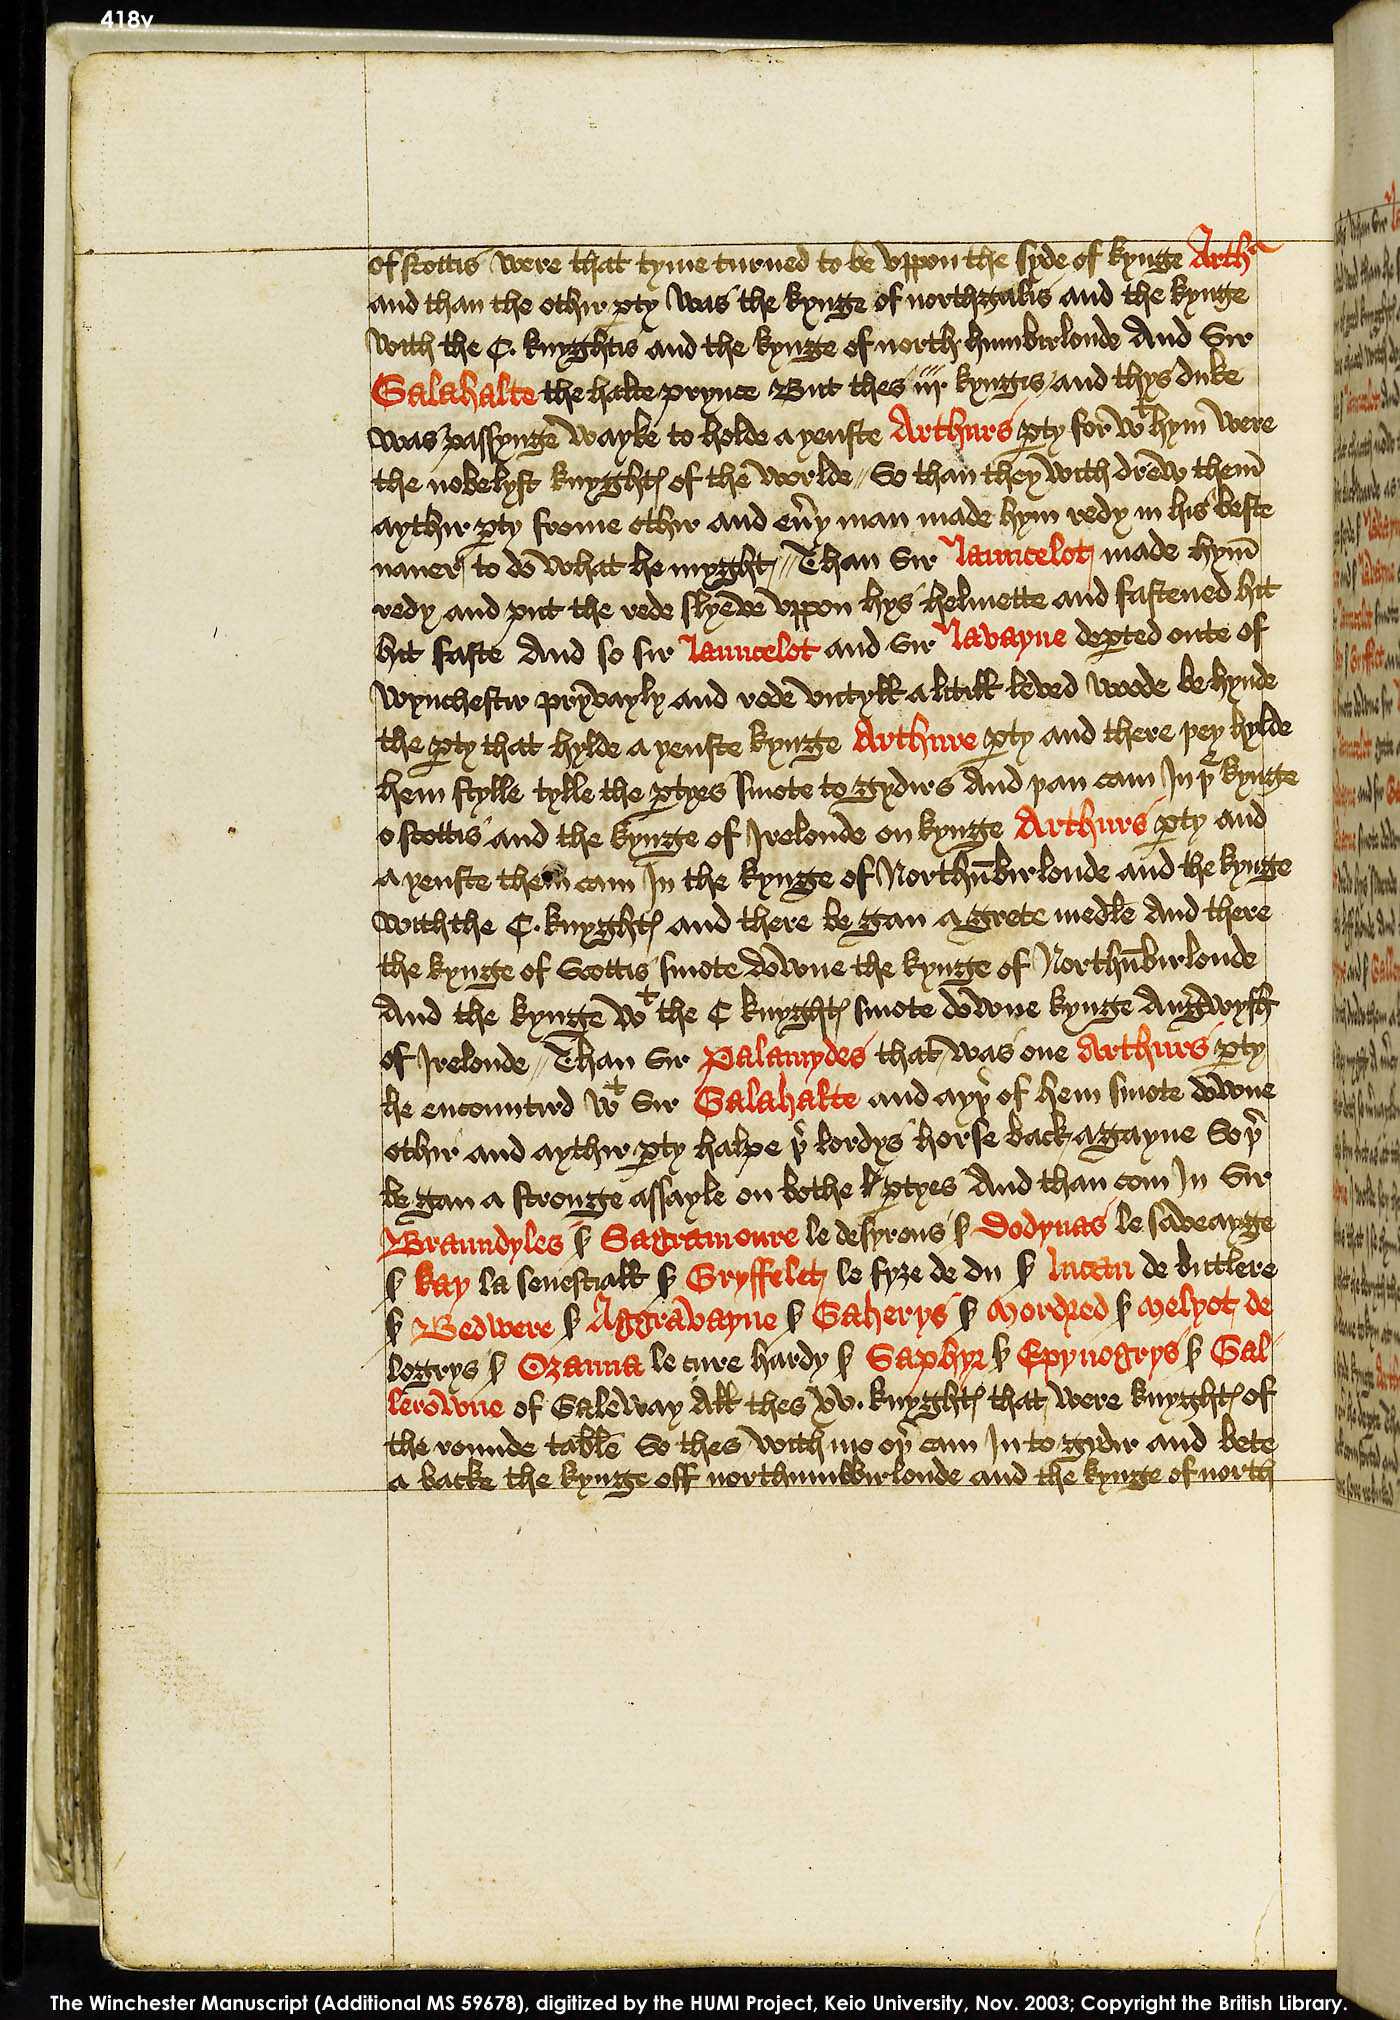 418v
of scottis were that tyme turned to be vppon the syde of kynge Arthᵃ
and than the othir ꝑty was the kynge of northgalis and the kynge
with the C. knyghtis and the kynge of north humbirlonde And Sir
Galahalte the halte prynce But thes iij kyngis and thys duke
was passynge wayke to holde a yenste Arthurs ꝑty for wᵗ hym were
the nobelyst knyghtꝭ of the worlde // So than they with drew them
aythir ꝑty frome othir and eu̓y man made hym redy in his beste
maner to do what he myght // Than Sir Launcelot made hym
redy and put the rede slyeve vppon hys helmette and fastened hit
hit faste And so sir Launcelot and Sir Lavayne deꝑted oute of
Wynchestir pryvayly and rode vntyll a litill leved woode be hynde
the ꝑty that hylde a yenste kynge Arthure ꝑty and there þey hylde
hem stylle tylle the ꝑtyes smote to gydirs And þan cam In þᵉ kynge
o scottis and the kynge of Irelonde on kynge Arthurs ꝑty and
a yenste them cam In the kynge of Northūbirlonde and the kynge
with the C. knyghtꝭ and there be gan a grete medle And there
the kynge of Scottis smote downe the kynge of Northūbirlonde
And the kynge wᵗ the C knyghtꝭ smote downe kynge Angwysh
of Irelonde // Than Sir Palamydes that was one Arthurs ꝑty
he encountird wᵗ Sir Galahalte and ayþ̓ of hem smote downe
othir and aythir ꝑty halpe þ̓ lordys horse back agayne So þ̓
be gan a stronge assayle on bothe ꝑtyes And than com In Sir
Braundyles ẜ Sagramoure le desyrous ẜ Dodynas le saveayge
ẜ kay la senesciall ẜ Gryffelet le fyze de du ẜ lucan de buttlere
ẜ Bedwere ẜ Aggravayne ẜ Gaherys ẜ Mordred ẜ Melyot de
logrys ẜ Ozanna le cure hardy ẜ Saphyr ẜ Epynogrys ẜ Gal
lerowne of Galeway All thes xv. knyghtꝭ that were knyghtꝭ of
the rounde table So thes with mo oþ̓ cam In to gydir and bete
a backe the kynge off northumbirlonde and the kynge of north
The Winchester Manuscript (Additional MS 59678), digitized by the HUMI Project, Keio University, Nov. 2003; Copyright the British Library.